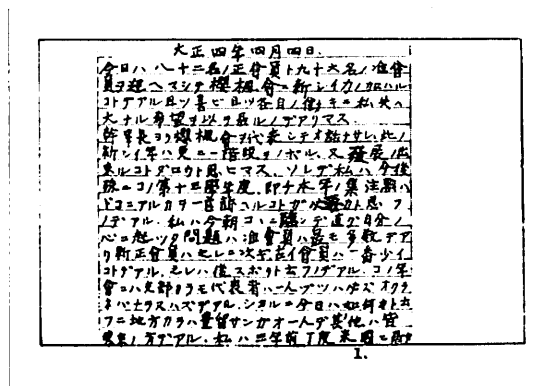 大正四年四月四日.
今日ハ八十二名ノ正會員ト九十六名ノ准會
員ヲ迎ヘマシテ櫻楓會ニ新シイ力ノ加ハル
コトデアル且ツ喜ビ且ツ各自ノ働キニ私共ハ
大ナル希望ヲ以テ居ルノデアリマス
幹事長ヨリ櫻楓會ヲ代表シテオ話ナサレ、此ノ
新シイ年ハ更ニ一階段ヲノボル、又發展ノ出
來ルコトダロウト思ヒマス、ソレデ私ハ今後
殊ニコノ第十二學年度、即チ本年ノ集注點ハ
ドコニアルカヲ一言訴ヘルコトガ必要カト思フ
ノデアル、私ハ今朝コヽニ臨ンデ直グ自分ノ
心ニ起ツタ問題ハ准會員ハ最モ多數デア
リ新正會員ハセレニ次ギ古イ會員ハ一番少イ
コトデアル、セレハ
會ニハ支部カラモ代表者ハ一人ヅツハ必ズオクラ
ネバナラヌハズデアル、シカルニ今日ハ如何カト云
フニ地方カラハ豊留サンガオ一人デ其他ハ皆
東京ノ方デアル、私ハ三年前丁度米國ニ
1.